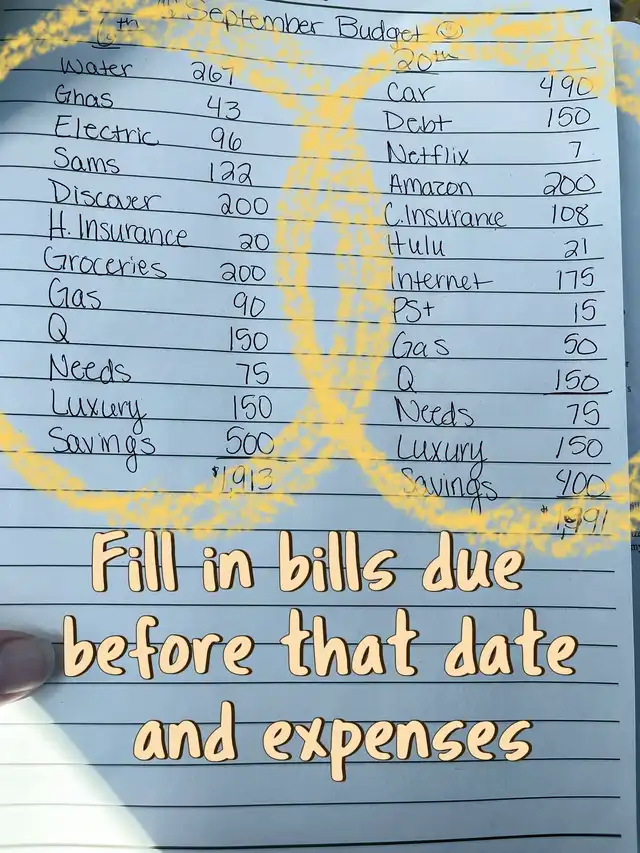 September Budget ☺
6th
Water 267
Ghas 43
Electric 96
Sams 122
Discover 200
H. Insurance 20
Groceries 200
Gas 90
Q 150
Needs 75
Luxury 150
Savings 500
$1,913
20th
Car 490
Debt 150
Netflix 7
Amazon 200
C.Insurance 108
Hulu 21
Internet 175
PS+ 15
Gas 50
Q 150
Needs 75
Luxury 150
Savings 400
$1,991
Fill in bills due
before that date
and expenses